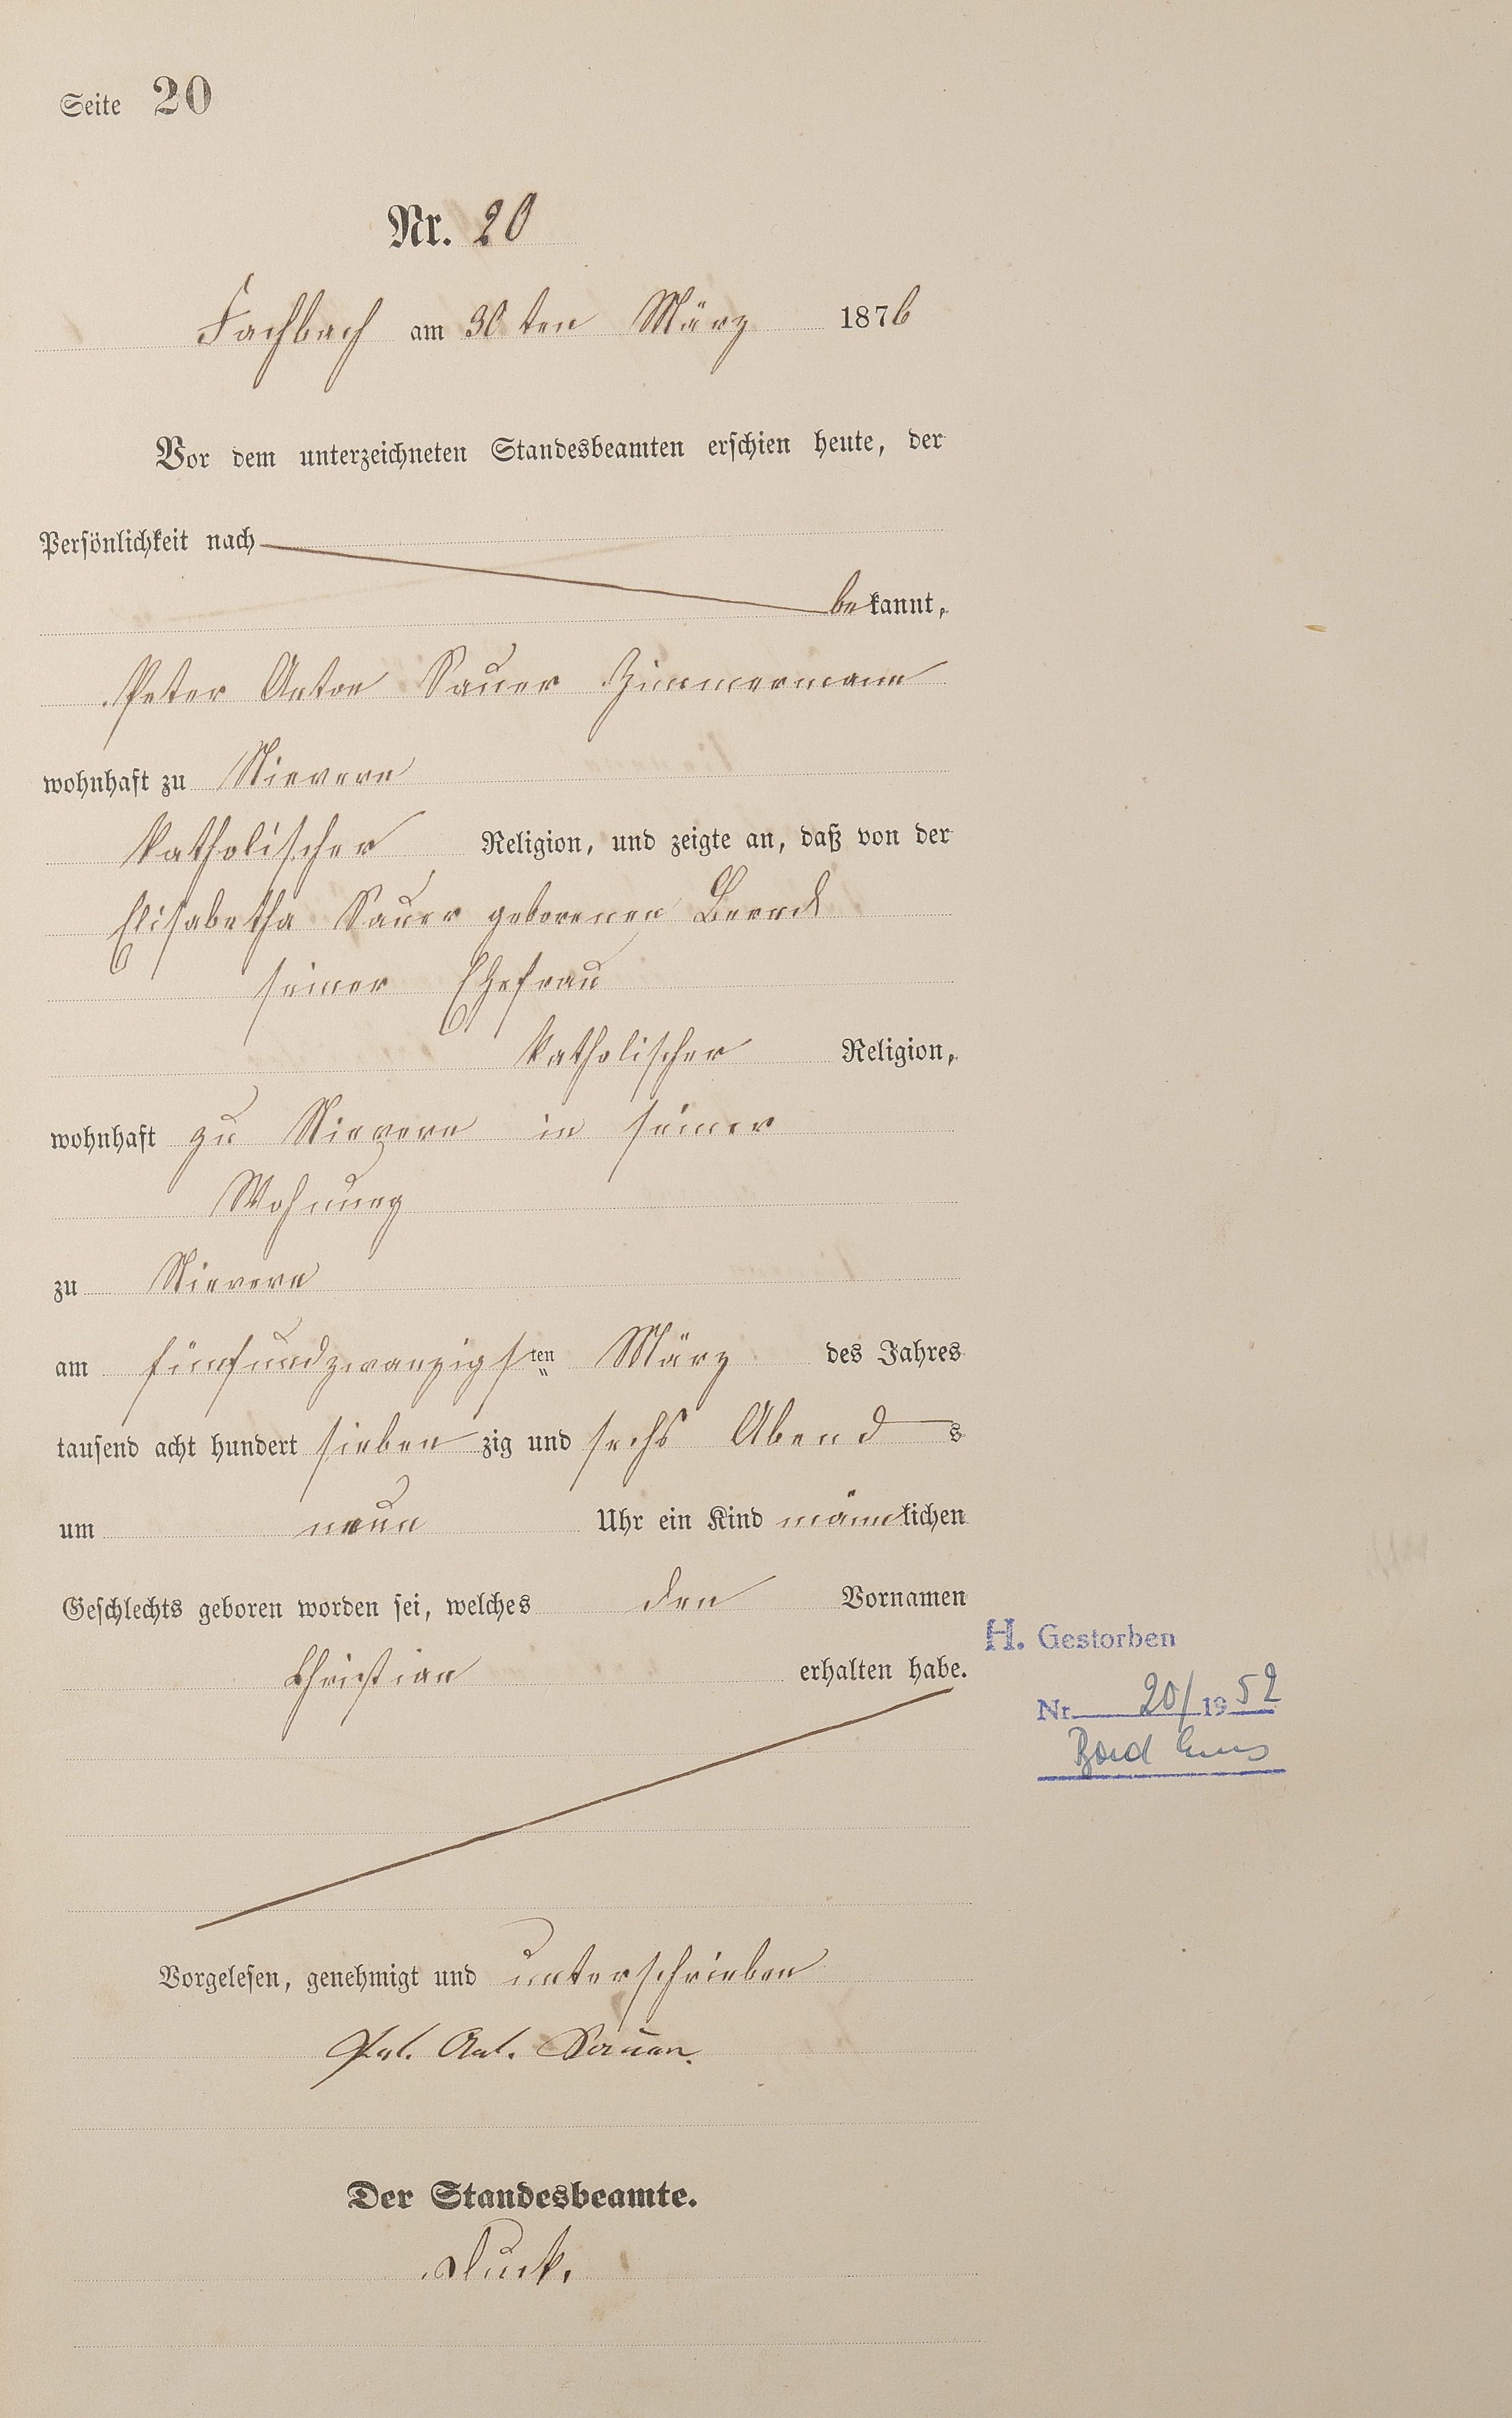 Seite 20
Nr. 20
Fachbach am 30ten März 1876
Vor dem unterzeichneten Standesbeamten erschien heute, der
Persönlichkeit nach
bekannt,
Peter Anton Sauer Zimmermann
wohnhaft zu Nievern
katholischer Religion, und zeigte an, daß von der
Elisabetha Sauer geborenen
seiner Ehefrau
katholischer Religion,
wohnhaft zu Nievern in seiner
Wohnung
zu Nievern
am fünfundzwanzigsten März des Jahres
tausend acht hundert siebenzig und sechs Abends
um neun Uhr ein Kind männlichen
Geschlechts geboren worden sei, welches den Vornamen
Christian erhalten habe.
H. Gestorben
Nr. 20/1952
Bad Ems
Vorgelesen, genehmigt und unterschrieben
Pet. Ant. Sauer.
Der Standesbeamte.